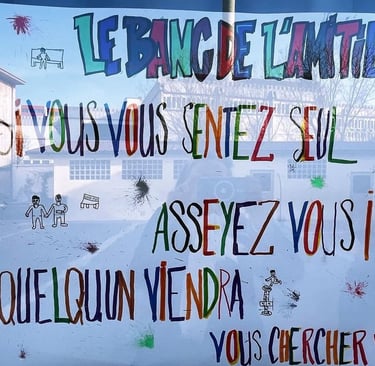 LE BANC DE L'AMITIÉ
SI VOUS VOUS SENTEZ SEUL
ASSEYEZ VOUS I
QUELQU'UN VIENDRA
VOUS CHERCHER